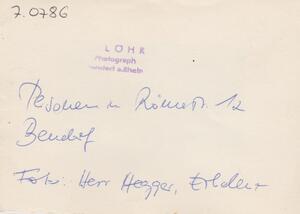 7.0786
LÖHR
Photograph
Bendorf a. Rhein
Personen in Römerstr. 12
Bendorf
Foto: Herr Hegger,